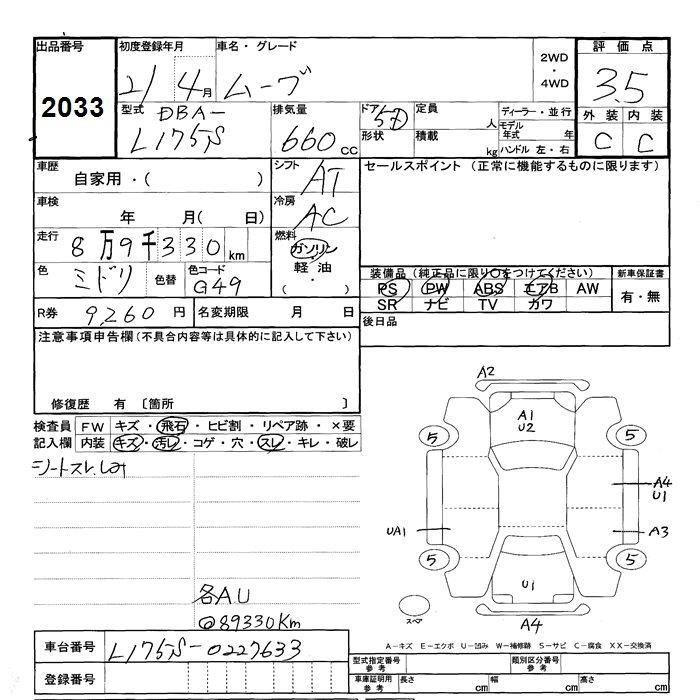 出品番号
2033
初度登録年月
21 4月
車名・グレード
ムーブ
2WD
・
4WD
評価点
3.5
外装 内装
C C
型式
DBA-
L175S
排気量
660 cc
ドア 5D
形状
定員 人
積載 kg
ディーラー・並行
モデル年式 年
ハンドル 左・右
車歴
自家用・( )
シフト
AT
セールスポイント (正常に機能するものに限ります)
車検
年 月( 日)
冷房
AC
走行
8万9千330km
燃料
ガソリン
軽油
( ・ )
色
ミドリ
色替
色コード
G49
装備品(純正品に限り○をつけてください)
PS PW ABS エアB AW
SR ナビ TV カワ
新車保証書
有・無
R券 9,260 円
名変期限 月 日
後日品
注意事項申告欄(不具合内容等は具体的に記入して下さい)
修復歴 有 〔箇所 〕
検査員記入欄
FW キズ・飛石・ヒビ割・リペア跡・×要
内装 キズ・汚レ・コゲ・穴・スレ・キレ・破レ
シートスレ.しみ
各A.U
@89330Km
A2
A1
U2
5
5
A4
U1
UA1
A3
5
5
U1
スペア
A4
A-キズ E-エクボ U-凹み W-補修跡 S-サビ C-腐食 XX-交換済
車台番号 L175S-0227633
登録番号
型式指定番号
参考
類別区分番号
参考
車庫証明用
参考
長さ cm
幅 cm
高さ cm